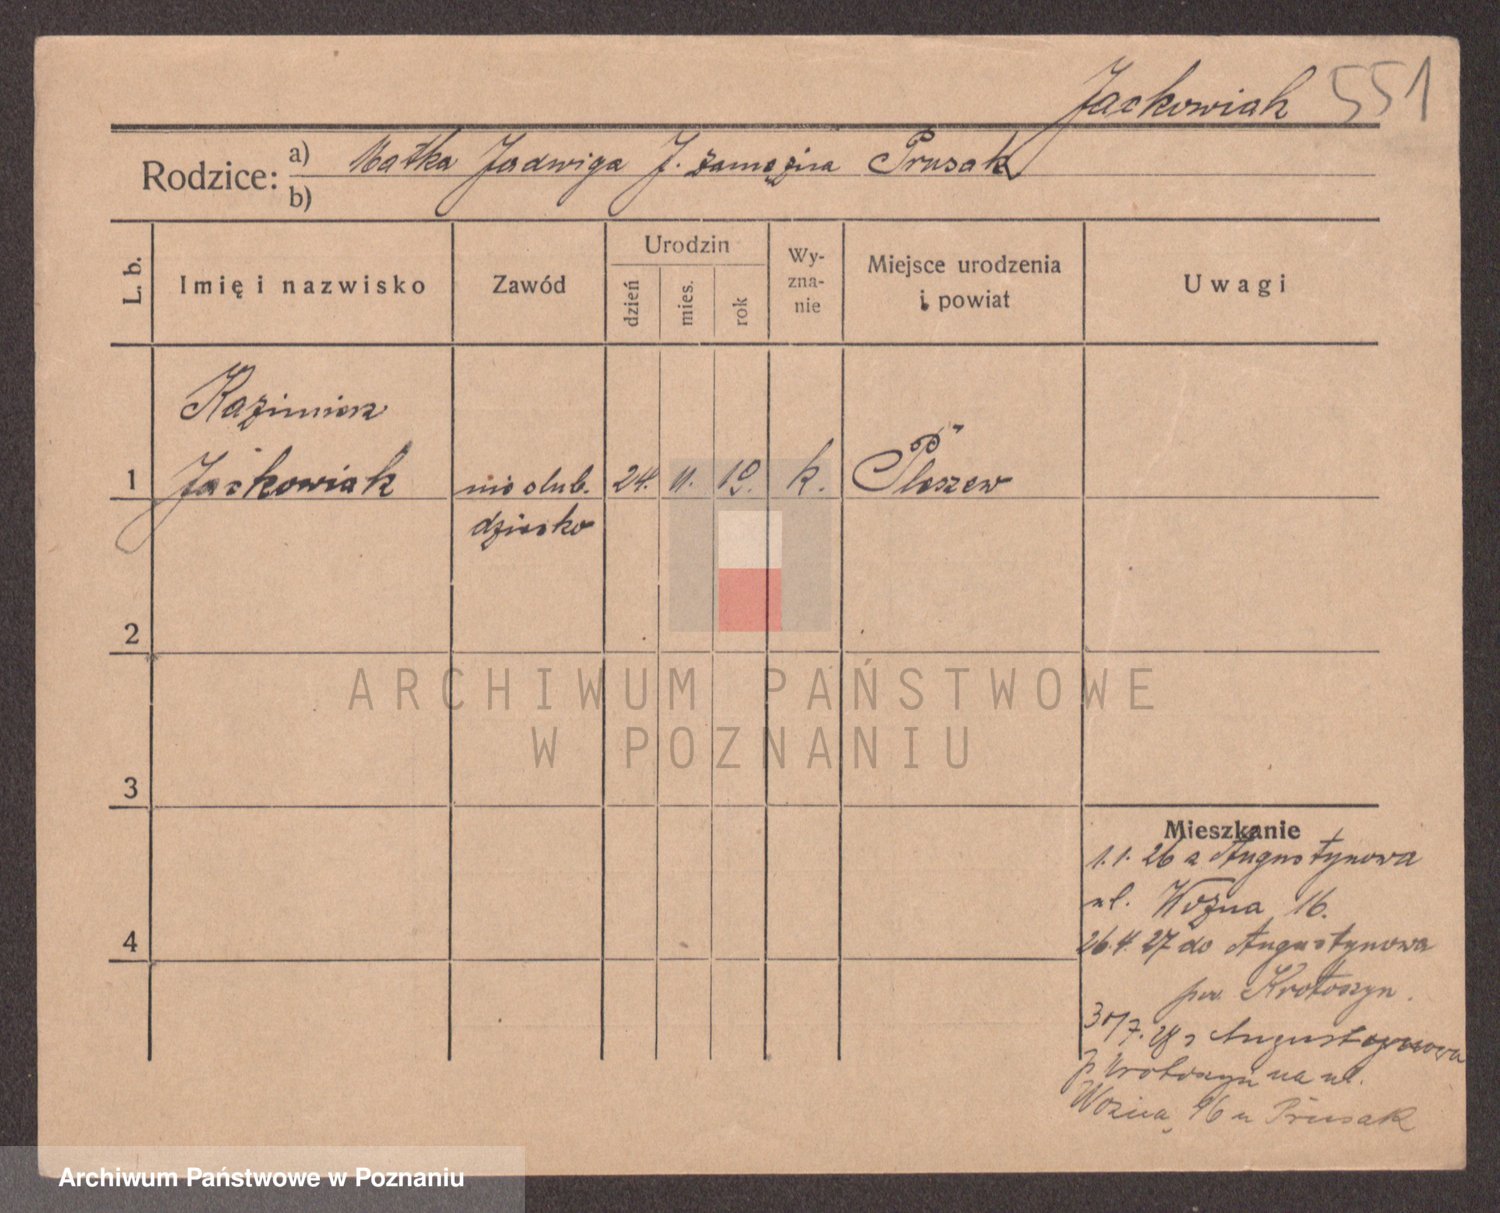 Jackowiak 551
Rodzice: a) Matka Jadwiga J. zamężna Prusak
b)
L. b.
Imię i nazwisko
Zawód
Urodzin
dzień
mies.
rok
Wy-
zna-
nie
Miejsce urodzenia
i powiat
Uwagi
Kazimierz
1 Jackowiak nieślub. 24. 11. 19. k. Pleszew
dziecko
2
3
4
Mieszkanie
1.1.26 z Augustynowa
ul. Woźna 16.
26.4.27 do Augustynowa
pow. Krotoszyn.
30/7. 28 z Augustynowa
p. Krotoszyn na ul.
Woźna 16 u Prusak
ARCHIWUM PAŃSTWOWE
W POZNANIU
Archiwum Państwowe w Poznaniu